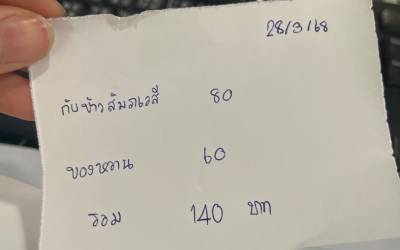 28/3/68
กับข้าวสัมภเวสี 80
ของหวาน 60
รวม 140 บาท